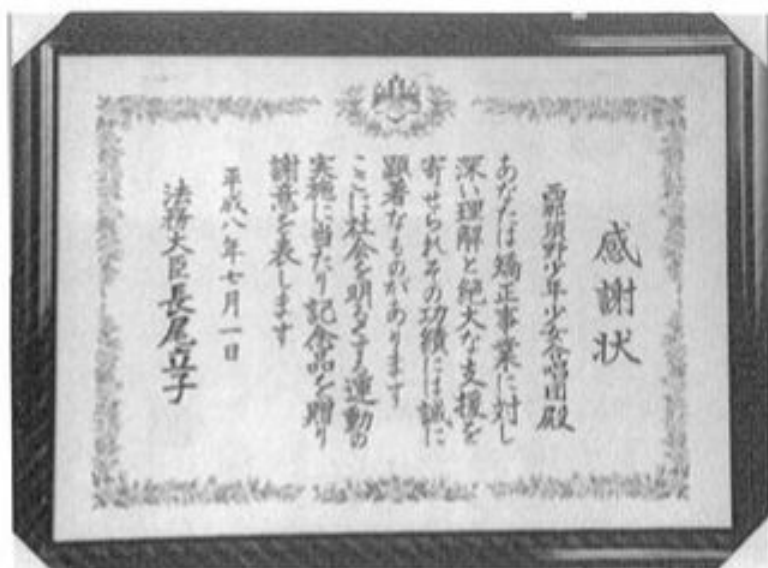 感謝状
西那須野少年少女合唱団殿
あなたは矯正事業に対し
深い理解と絶大な支援を
寄せられその功績には誠に
顕著なものがあります
ここに社会を明るくする運動の
実施に当たり記念品を贈り
謝意を表します
平成八年七月一日
法務大臣長尾立子